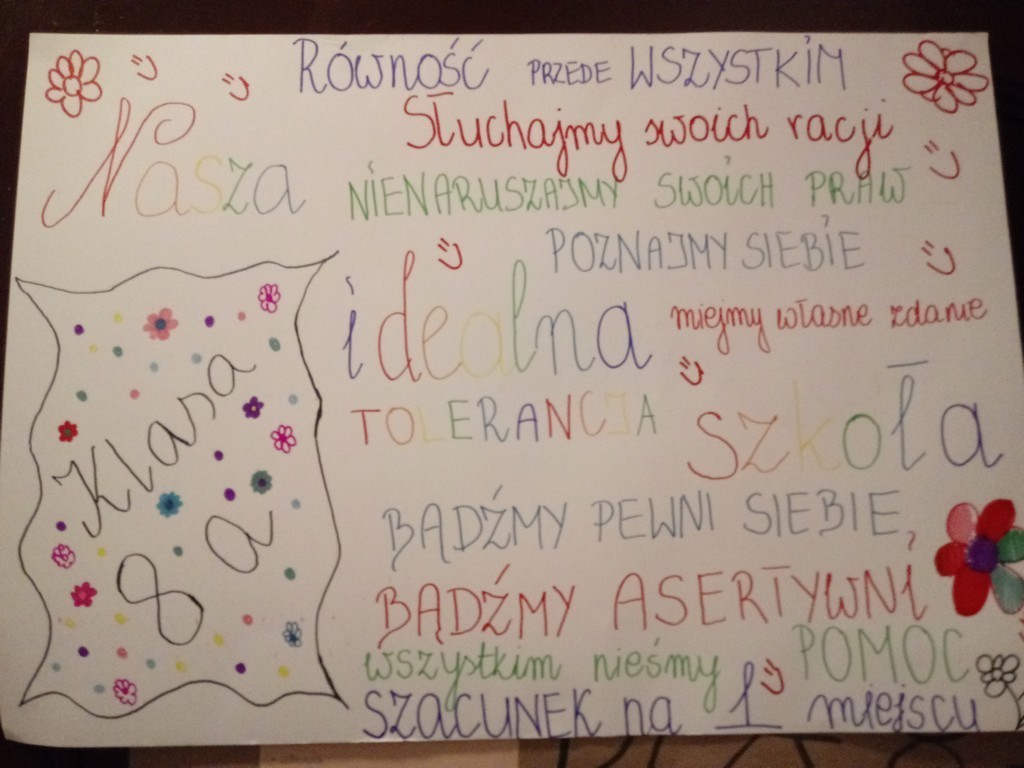 Równość PRZEDE WSZYSTKIM
Słuchajmy swoich racji
Nasza
NIENARUSZAJMY SWOICH PRAW
POZNAJMY SIEBIE
idealna
miejmy własne zdanie
TOLERANCJA
szkoła
Klasa
8a
BĄDŹMY PEWNI SIEBIE,
BĄDŹMY ASERTYWNI
wszystkim nieśmy POMOC
SZACUNEK na 1 miejscu